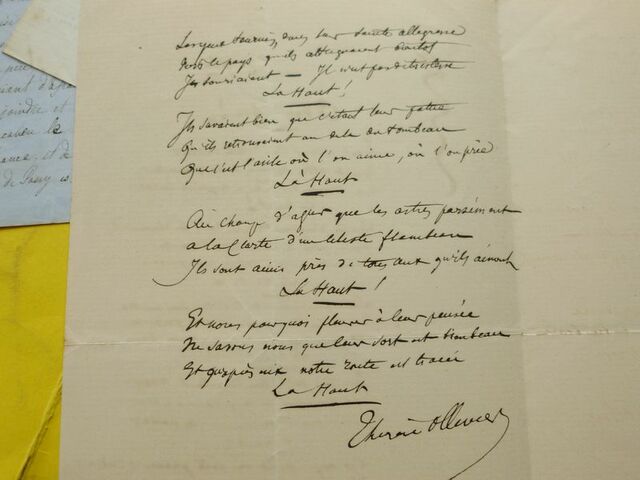 Les yeux tournés, dans leur sainte allegresse
Vers le pays qu'ils atteignaient bientot
Ils souriaient — Il n'est pas de tristesse
Là Haut !
Ils savaient bien que c'etait leur patrie
Qu'ils retrouvaient au dela du tombeau
Que c'est l'asile où l'on aime, où l'on prie
Là Haut
Au champ d'azur que les astres parsèment
a la Clarte d'un Celeste flambeau
Ils sont ainsi près de tous ceux qu'ils aiment
Là Haut !
Et nous pourquoi pleurer à leur pensée
Ne savons nous que leur sort est si beau
Et qu'après eux notre route est tracée
Là Haut
Ollivier
peu
et
de